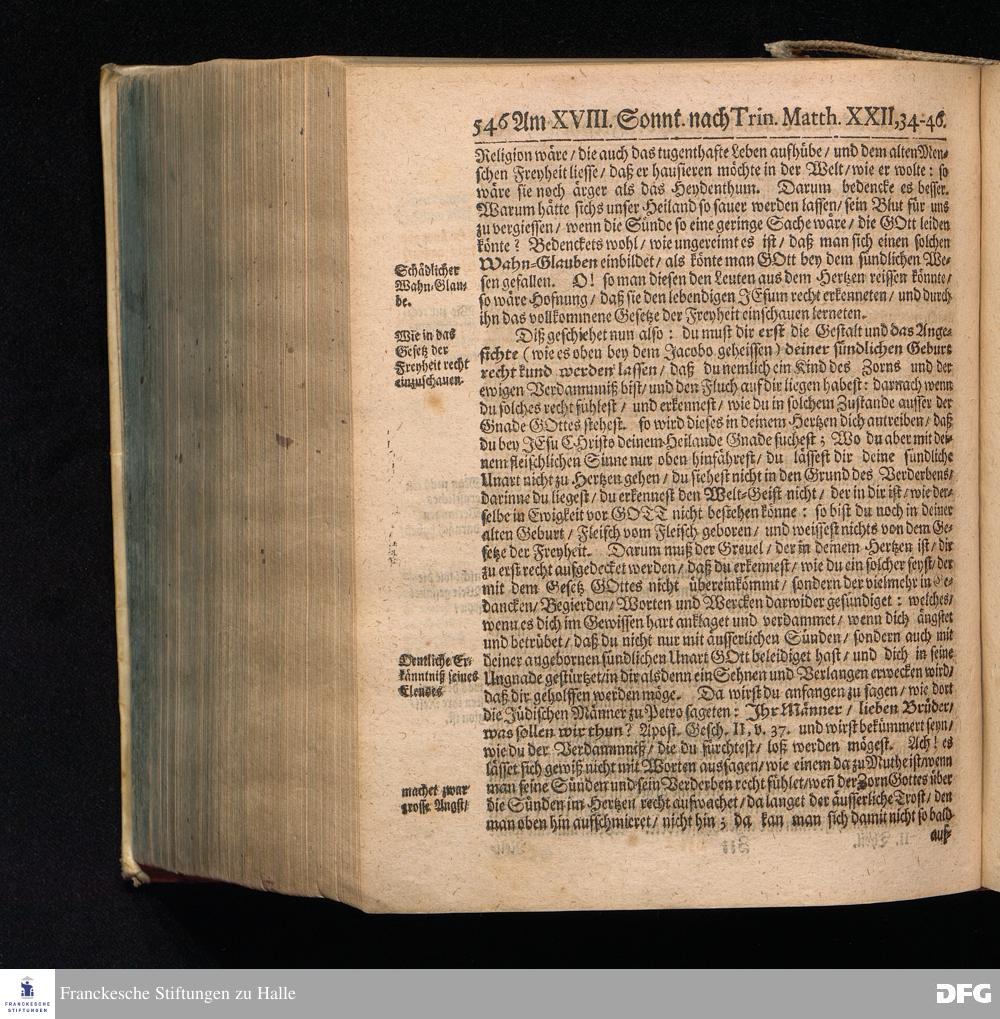 546 Am XVIII. Sonnt. nach Trin. Matth. XXII, 34-46.
Religion wäre / die auch das tugenthafte Leben aufhübe / und dem alten Men-
schen Freyheit liesse / daß er hausieren möchte in der Welt / wie er wolte: so
wäre sie noch ärger als das Heydenthum. Darum bedencke es besser.
Warum hätte sichs unser Heiland so sauer werden lassen / sein Blut für uns
zu vergiessen / wenn die Sünde so eine geringe Sache wäre / die GOtt leiden
könte? Bedenckets wohl / wie ungereimt es ist / daß man sich einen solchen
Wahn-Glauben einbildet / als könte man GOtt bey dem sündlichen We-
sen gefallen. O! so man diesen den Leuten aus dem Hertzen reissen könnte /
so wäre Hofnung / daß sie den lebendigen JEsum recht erkenneten / und durch
ihn das vollkommene Gesetze der Freyheit einschauen lerneten.
Schädlicher
Wahn-Glau-
be.
Diß geschiehet nun also: du must dir erst die Gestalt und das Ange-
sichte (wie es oben bey dem Jacobo geheissen) deiner sündlichen Geburt
recht kund werden lassen / daß du nemlich ein Kind des Zorns und der
ewigen Verdammniß bist / und den Fluch auf dir liegen habest: darnach wenn
du solches recht fühlest / und erkennest / wie du in solchem Zustande ausser der
Gnade GOttes stehest. so wird dieses in deinem Hertzen dich antreiben / daß
du bey JEsu CHristo deinem Heilande Gnade suchest; Wo du aber mit dei-
nem fleischlichen Sinne nur oben hinfährest / du lässest dir deine sündliche
Unart nicht zu Hertzen gehen / du siehest nicht in den Grund des Verderbens /
darinne du liegest / du erkennest den Welt-Geist nicht / der in dir ist / wie der-
selbe in Ewigkeit vor GOTT nicht bestehen könne: so bist du noch in deiner
alten Geburt / Fleisch vom Fleisch geboren / und weissest nichts von dem Ge-
setze der Freyheit. Darum muß der Greuel / der in deinem Hertzen ist / dir
zu erst recht aufgedecket werden / daß du erkennest / wie du ein solcher seyst / der
mit dem Gesetz GOttes nicht übereinkömmt / sondern der vielmehr in Ge-
dancken / Begierden / Worten und Wercken darwider gesündiget: welches /
wenn es dich im Gewissen hart anklaget und verdammet / wenn dich ängstet
und betrübet / daß du nicht nur mit äusserlichen Sünden / sondern auch mit
deiner angebornen sündlichen Unart GOtt beleidiget hast / und dich in seine
Ungnade gestürtzet / in dir alsdenn ein Sehnen und Verlangen erwecken wird /
daß dir geholffen werden möge. Da wirst du anfangen zu sagen / wie dort
die Jüdischen Männer zu Petro sageten: Ihr Männer / lieben Brüder /
was sollen wir thun? Apost. Gesch. II, v. 37. und wirst bekümmert seyn /
wie du der Verdammniß / die du fürchtest / loß werden mögest. Ach! es
lässet sich gewiß nicht mit Worten aussagen / wie einem da zu Muthe ist / wenn
man seine Sünden und sein Verderben recht fühlet / weñ der Zorn Gottes über
die Sünden im Hertzen recht aufwachet / da langet der äusserliche Trost / den
man oben hin aufschmieret / nicht hin; da kan man sich damit nicht so bald
auf-
Wie in das
Gesetz der
Freyheit recht
einzuschauen.
Oentliche Er-
känntniß seines
Elendes
machet zwar
grosse Angst /
Franckesche Stiftungen zu Halle
FRANCKESCHE
STIFTUNGEN
DFG